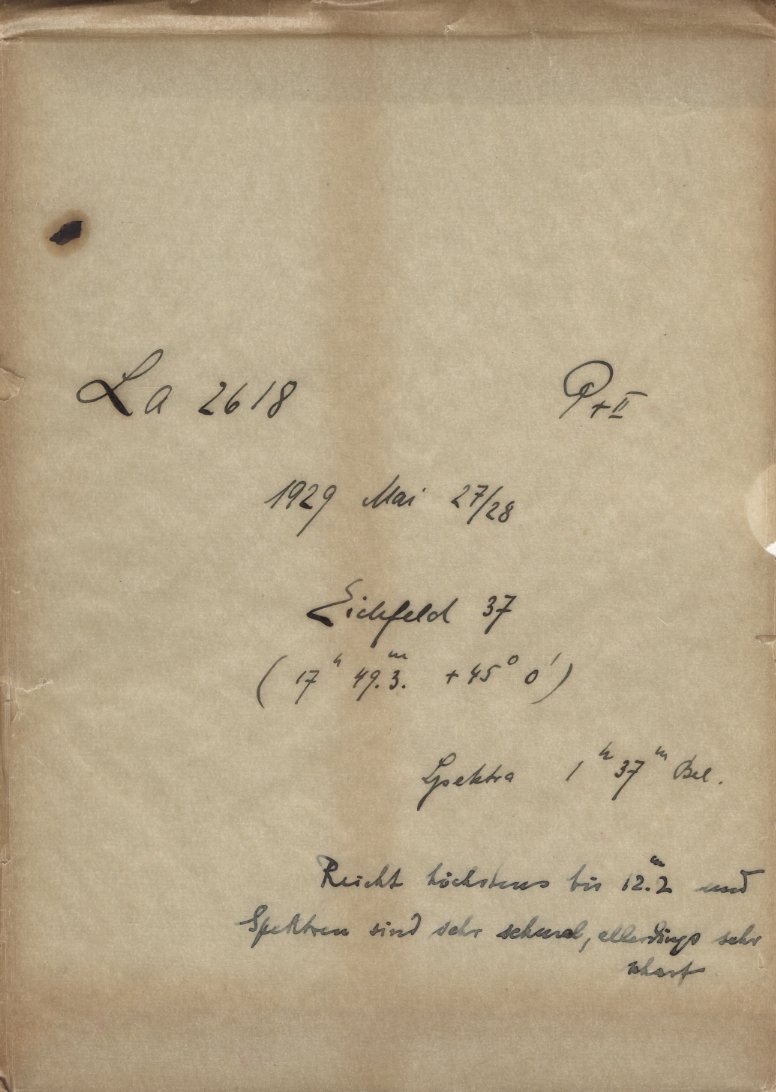 La 2618 P+II
1929 Mai 27/28
Eichfeld 37
( 17ʰ 49.3.ᵐ +45° 0' )
Spektra 1ʰ 37ᵐ Bel.
Reicht höchstens bis 12.ᵐ2 und
Spektren sind sehr schmal, allerdings sehr
scharf